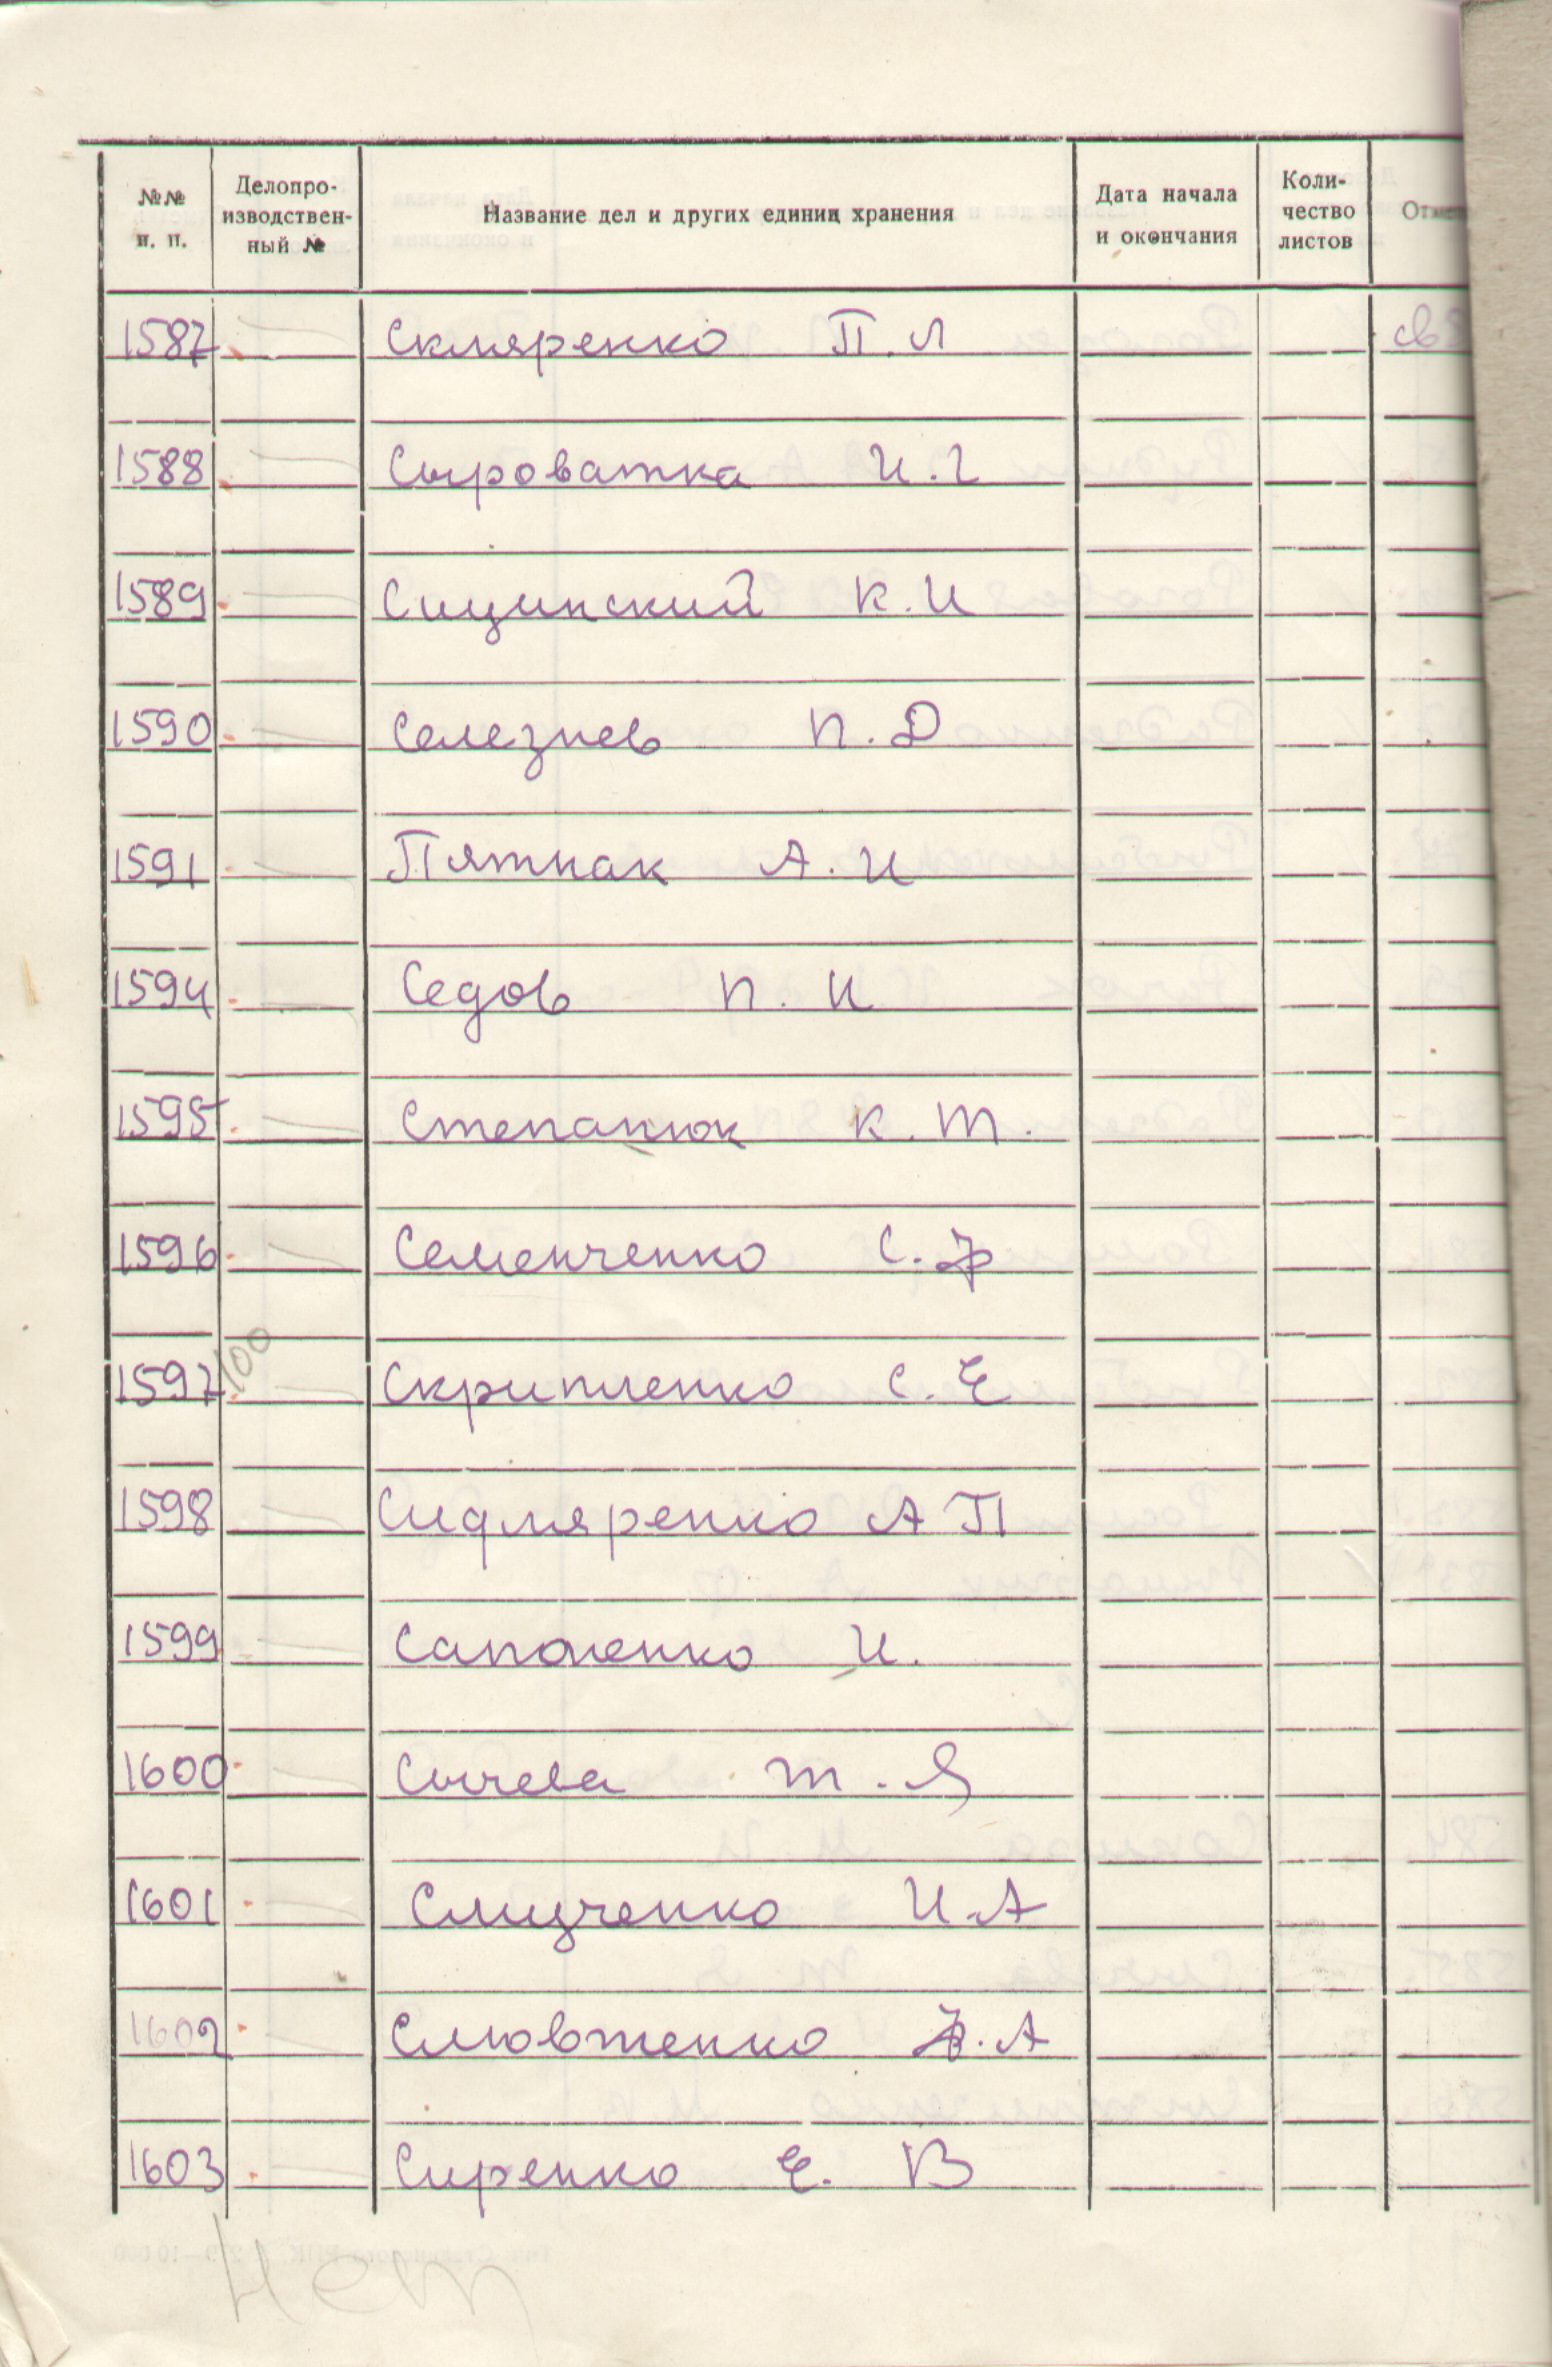 №№ п. п. Делопро-изводствен-ный № Название дел и других единиц хранения Дата начала и окончания Коли-чество листов
1587 Скляренко П. Л
1588 Сыроватка И. Г
1589 Сицинский К. И
1590 Селезнев П. Д
1591 Пятнак А. И
1594 Седов П. И
1595 Степанюк К. Т.
1596 Семенченко С. Ф
100
1597 Скрипленко С. Е
1598 Сидляренко А П
1599 Сапоненко И.
1600 Сычева Т. Я
1601 Слищенко И. А
1602 Словженко А
1603 Сиренко Е. В
Нет